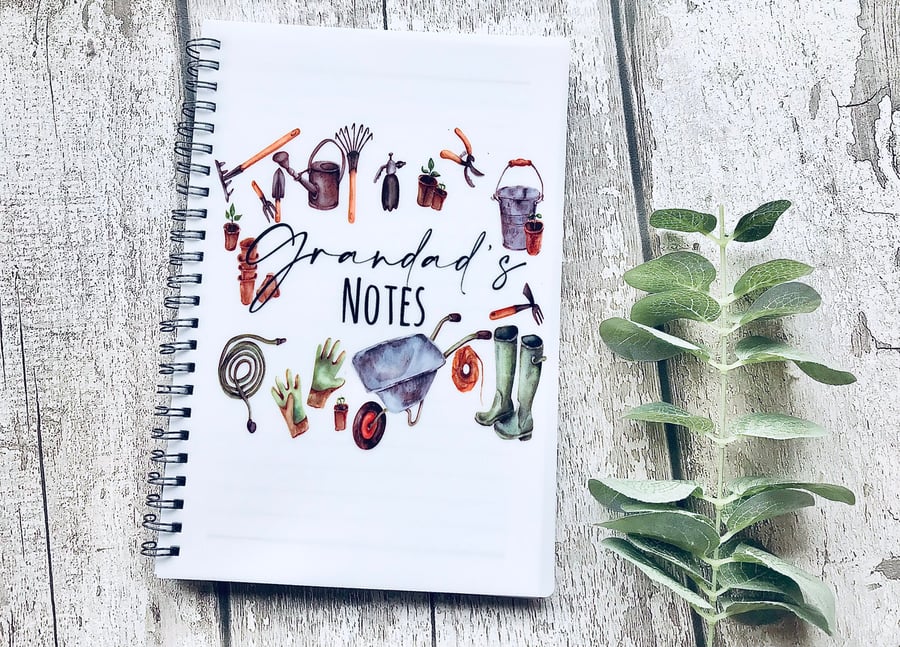 Grandad's
NOTES